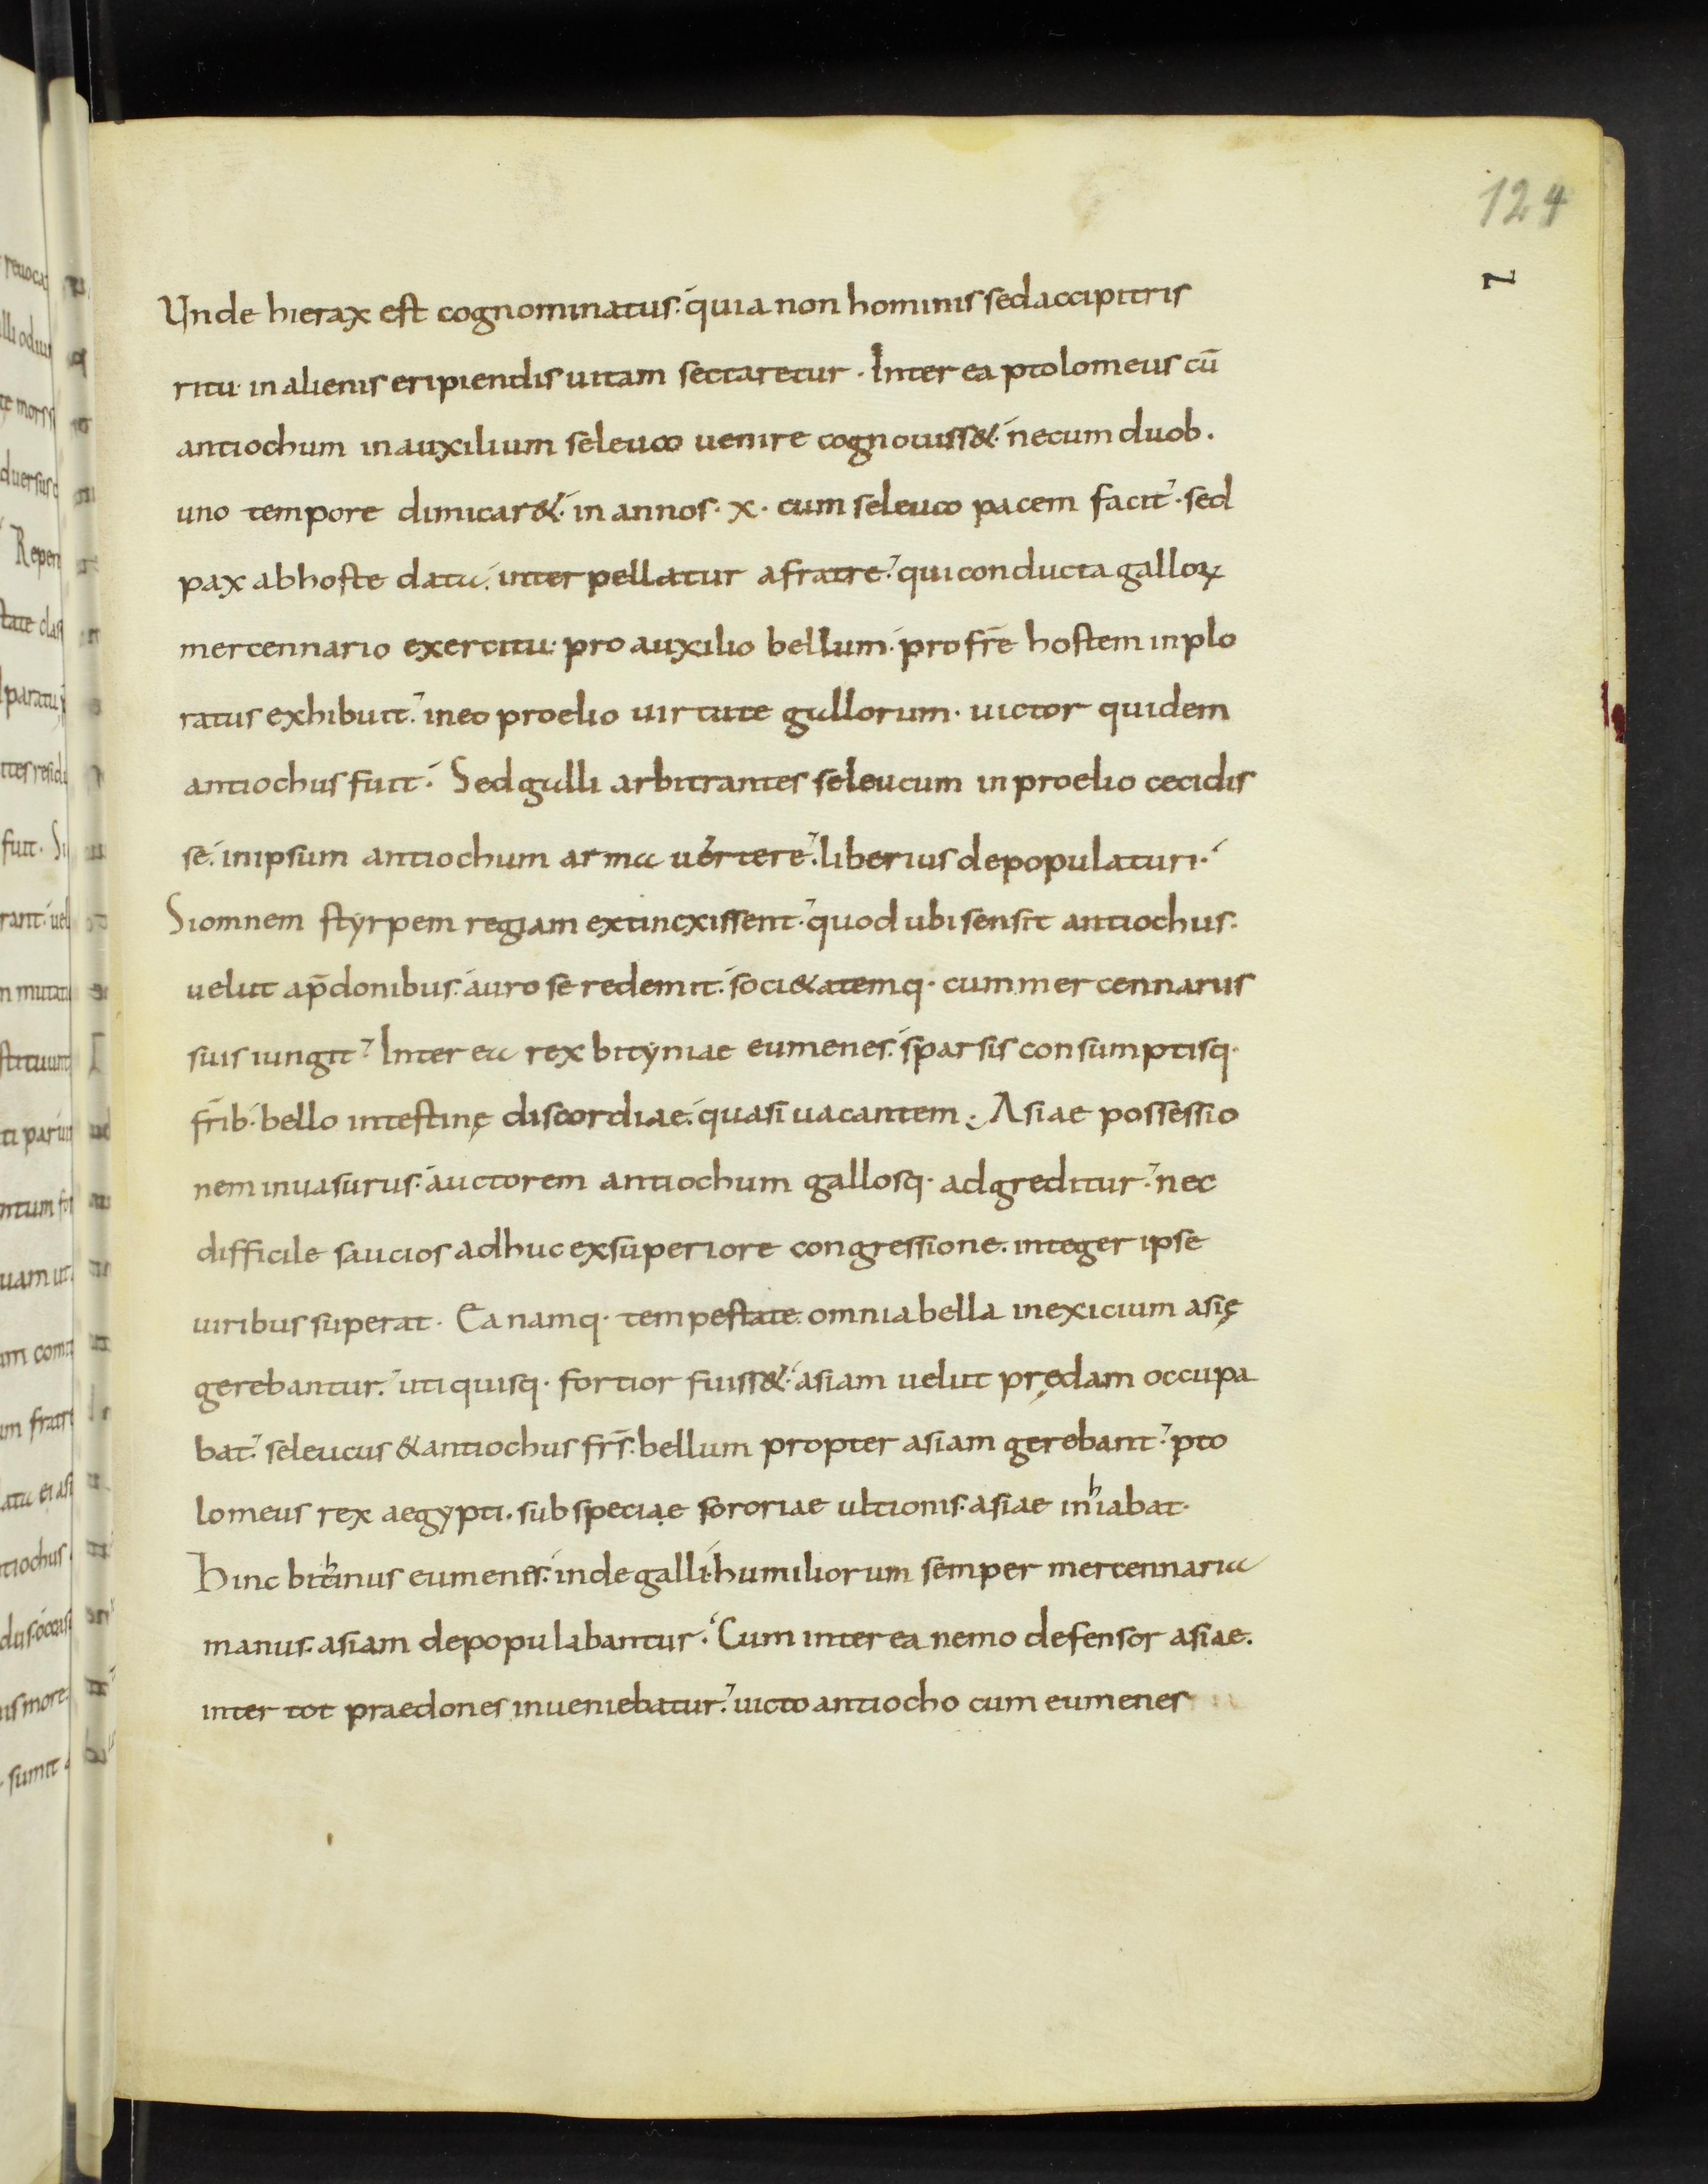 124
Unde hierax est cognominatus. quia non hominis sed accipitris
ritu in alienis eripiendis uitam sectaretur. Inter ea ptolomeus cū
antiochum in auxilium seleuco uenire cognouiss&. ne cum duob.
uno tempore dimicar&. in annos. x. cum seleuco pacem facit. sed
pax ab hoste data. inter pellatur a fratre. qui conducta galloꝝ
mercennario exercitu. pro auxilio bellum. pro fr̄e hostem inplo
ratus exhibuit. in eo proelio uirtute gallorum. uictor quidem
antiochus fuit. Sed galli arbitrantes seleucum in proelio cecidis
se. in ipsum antiochum arma uertere. liberius depopulaturi.
Si omnem styrpem regiam extincxissent. quod ubi sensit antiochus.
uelut ap̄donibus. auro se redemit. soci&atemq. cum mercennariis
suis iungit. Inter ea rex bityniae eumenes. sparsis consumptisq.
fr̄ib. bello intestinę discordiae. quasi uacantem. Asiae possessio
nem inuasurus. auctorem antiochum gallosq. adgreditur. nec
difficile saucios adhuc ex superiore congressione. integer ipse
uiribus superat. Ea namq. tempestate. omnia bella in exicium asię
gerebantur. uti quisq. fortior fuiss&. asiam uelut prędam occupa
bat. seleucus & antiochus fr̄s. bellum propter asiam gerebant. pto
lomeus rex aegypti. sub speciae sororiae ultionis. asiae inhiabat.
Hinc bithinus eumenes. inde galli. humiliorum semper mercennaria
manus. asiam depopulabantur. Cum inter ea nemo defensor asiae.
inter tot praedones inueniebatur. uicto antiocho cum eumenes